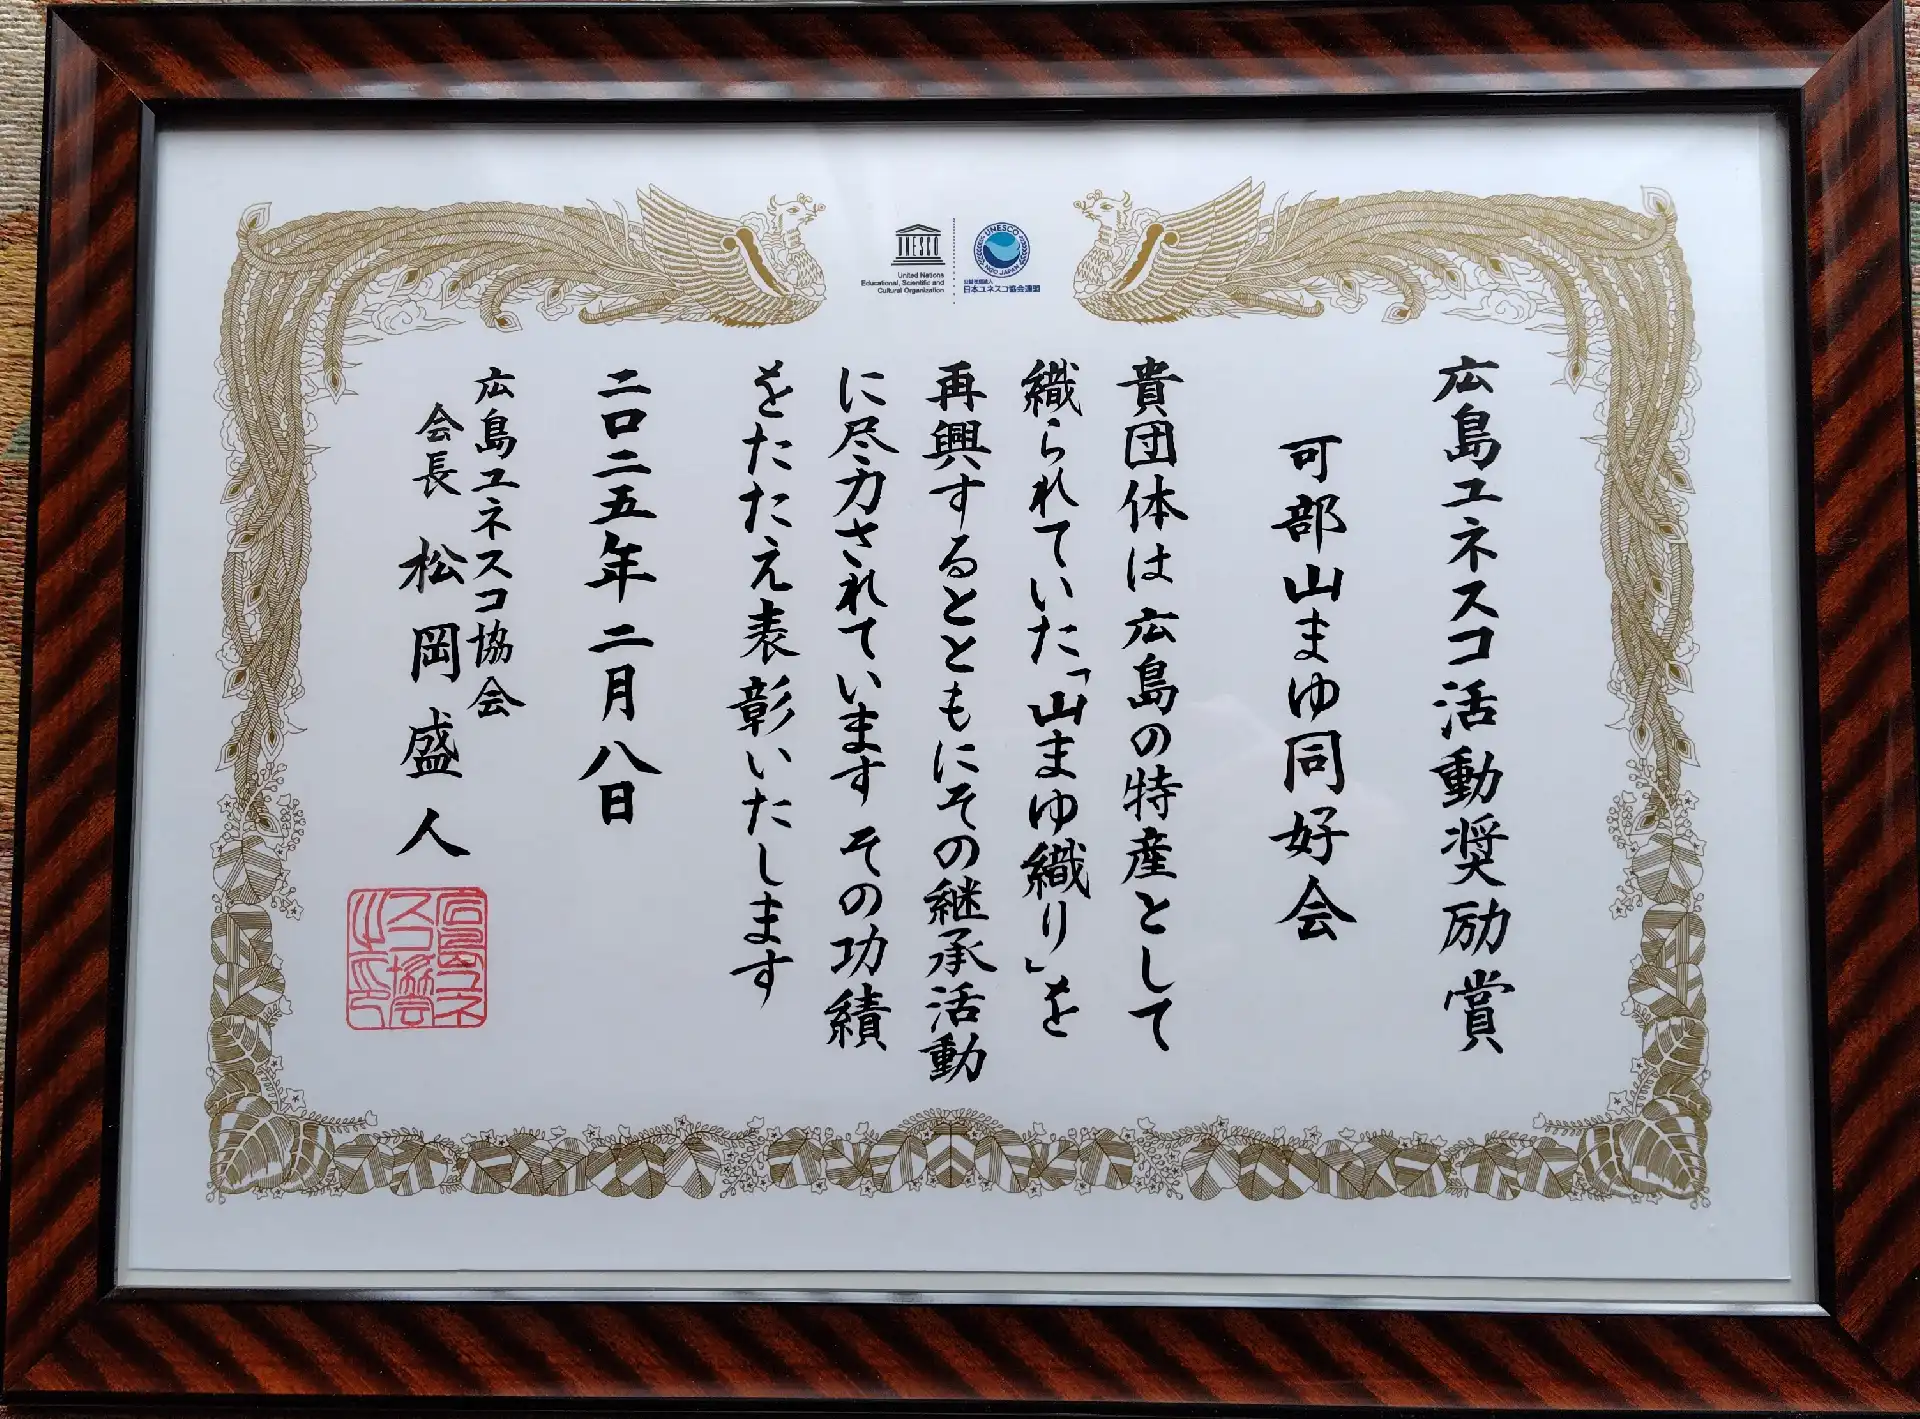 UNESCO
United Nations
Educational, Scientific and
Cultural Organization
UNESCO
NGO JAPAN
公益社団法人
日本ユネスコ協会連盟
広島ユネスコ活動奨励賞
可部山まゆ同好会
貴団体は広島の特産として
織られていた「山まゆ織り」を
再興するとともにその継承活動
に尽力されています その功績
をたたえ表彰いたします
二〇二五年二月八日
広島ユネスコ協会
会長 松岡盛人